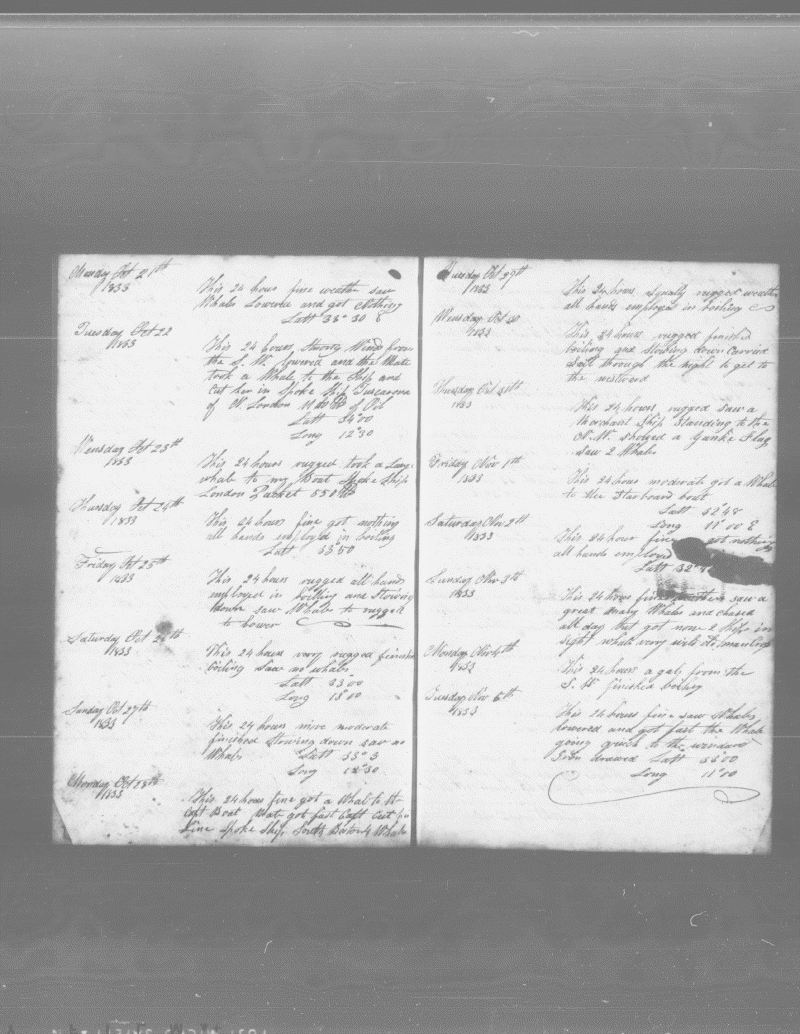 Monday Oct 21th
1833
This 24 hours fine weather saw
Whales Lowered and got Nothing
Latt 33° 30 S
Tuesday Oct 22
1833
This 24 hours Strong Wind from
the S. W. Lowered and the Mate
took a Whale to the Ship and
Cut her in Spoke Ship Tuscarora
of N London of Oil
Latt 34°00
Long 12°30
Wensday Oct 23th
1833
This 24 hours rugged took a Large
whale to my Boat Spoke Ship
London Packet 550
Thursday Oct 24th
1833
This 24 hours fine got nothing
all hands employd in boiling
Latt 33°50
Friday Oct 25th
1833
This 24 hours rugged all hands
employed in boiling and Stowing
down saw Whales to rugged
to lower
Saturday Oct 26th
1833
This 24 hours very rugged finished
boiling Saw no whales
Latt 33°00
Long 13°00
Sunday Oct 27th
1833
This 24 hours more moderate
finished Stowing down saw no
Whales Latt 33°3
Long 12°30
Monday Oct 28th
1833
This 24 hours fine got a Whale to the
Boat Mate got fast Cut
Line Spoke Ship South Boston 4 Whales
Tuesday Oct 29th
1833
This 24 hours rugged weather
all hands employed in boiling
Wensday Oct 30
1833
This 24 hours rugged finished
boiling and Stowing down Carried
Sail through the night to get to
the westward
Thursday Oct 31th
1833
This 24 hours rugged saw a
Merchant Ship Standing to the
N. W. showed a Yankee Flag
Saw 2 Whales
Friday Nov 1th
1833
This 24 hours moderate got a Whale
to the Starboard boat
Latt 32°48
Long 11°00 E
Saturday Nov 2th
1833
This 24 hours fine got nothing
all hands employd
Latt 32°
Sunday Nov 3th
1833
This 24 hours fine weather saw a
great many Whales and chased
all day but got none 2 Ships in
sight whales very
Monday Nov 4th
1833
This 24 hours a gale from the
S. W finished boiling
Tuesday Nov 5th
1833
This 24 hours fine saw Whales
Lowered and got fast the Whale
going quick to the windward
Iron drawed Latt 33°00
Long 11°00